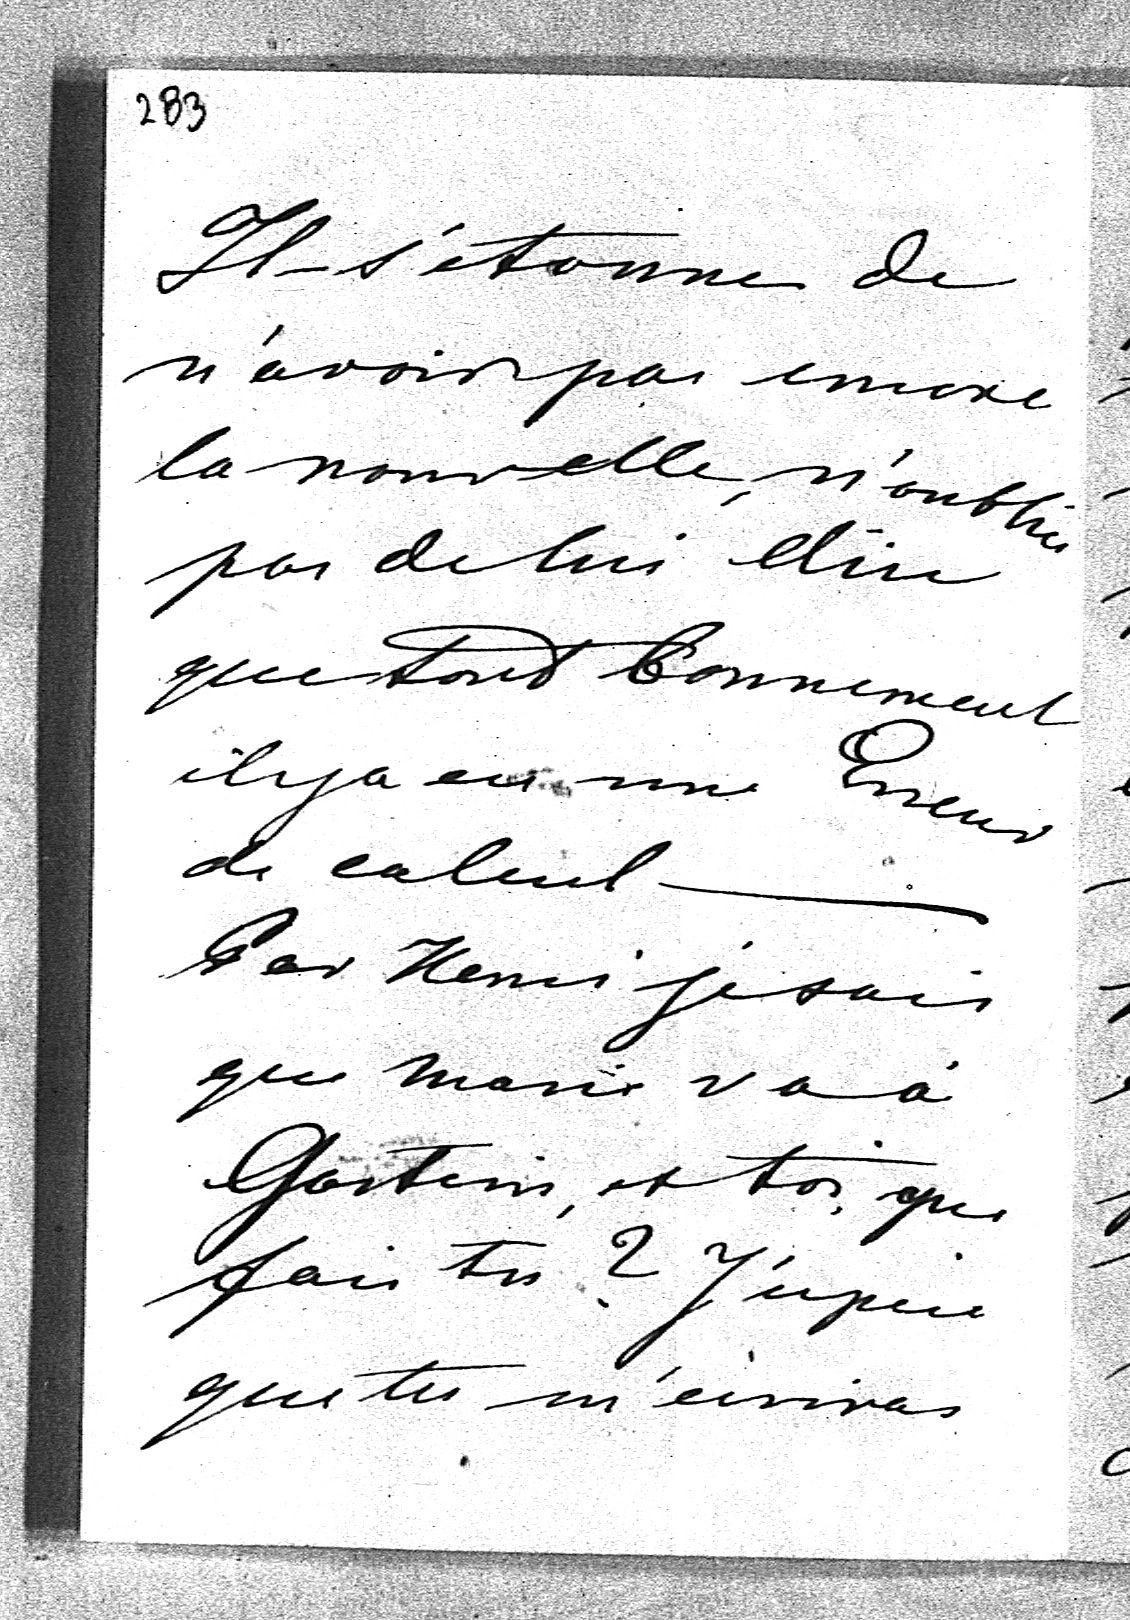 283
Il s'étonne de
n'avoir pas encore
la nouvelle, n'oublies
pas de lui dire
que tout bonnement
il y a eu une Erreur
de calcul —
Par Henri je sais
que Marie va à
Gastein, et toi, que
fais tu ? J'espère
que tu m'écriras